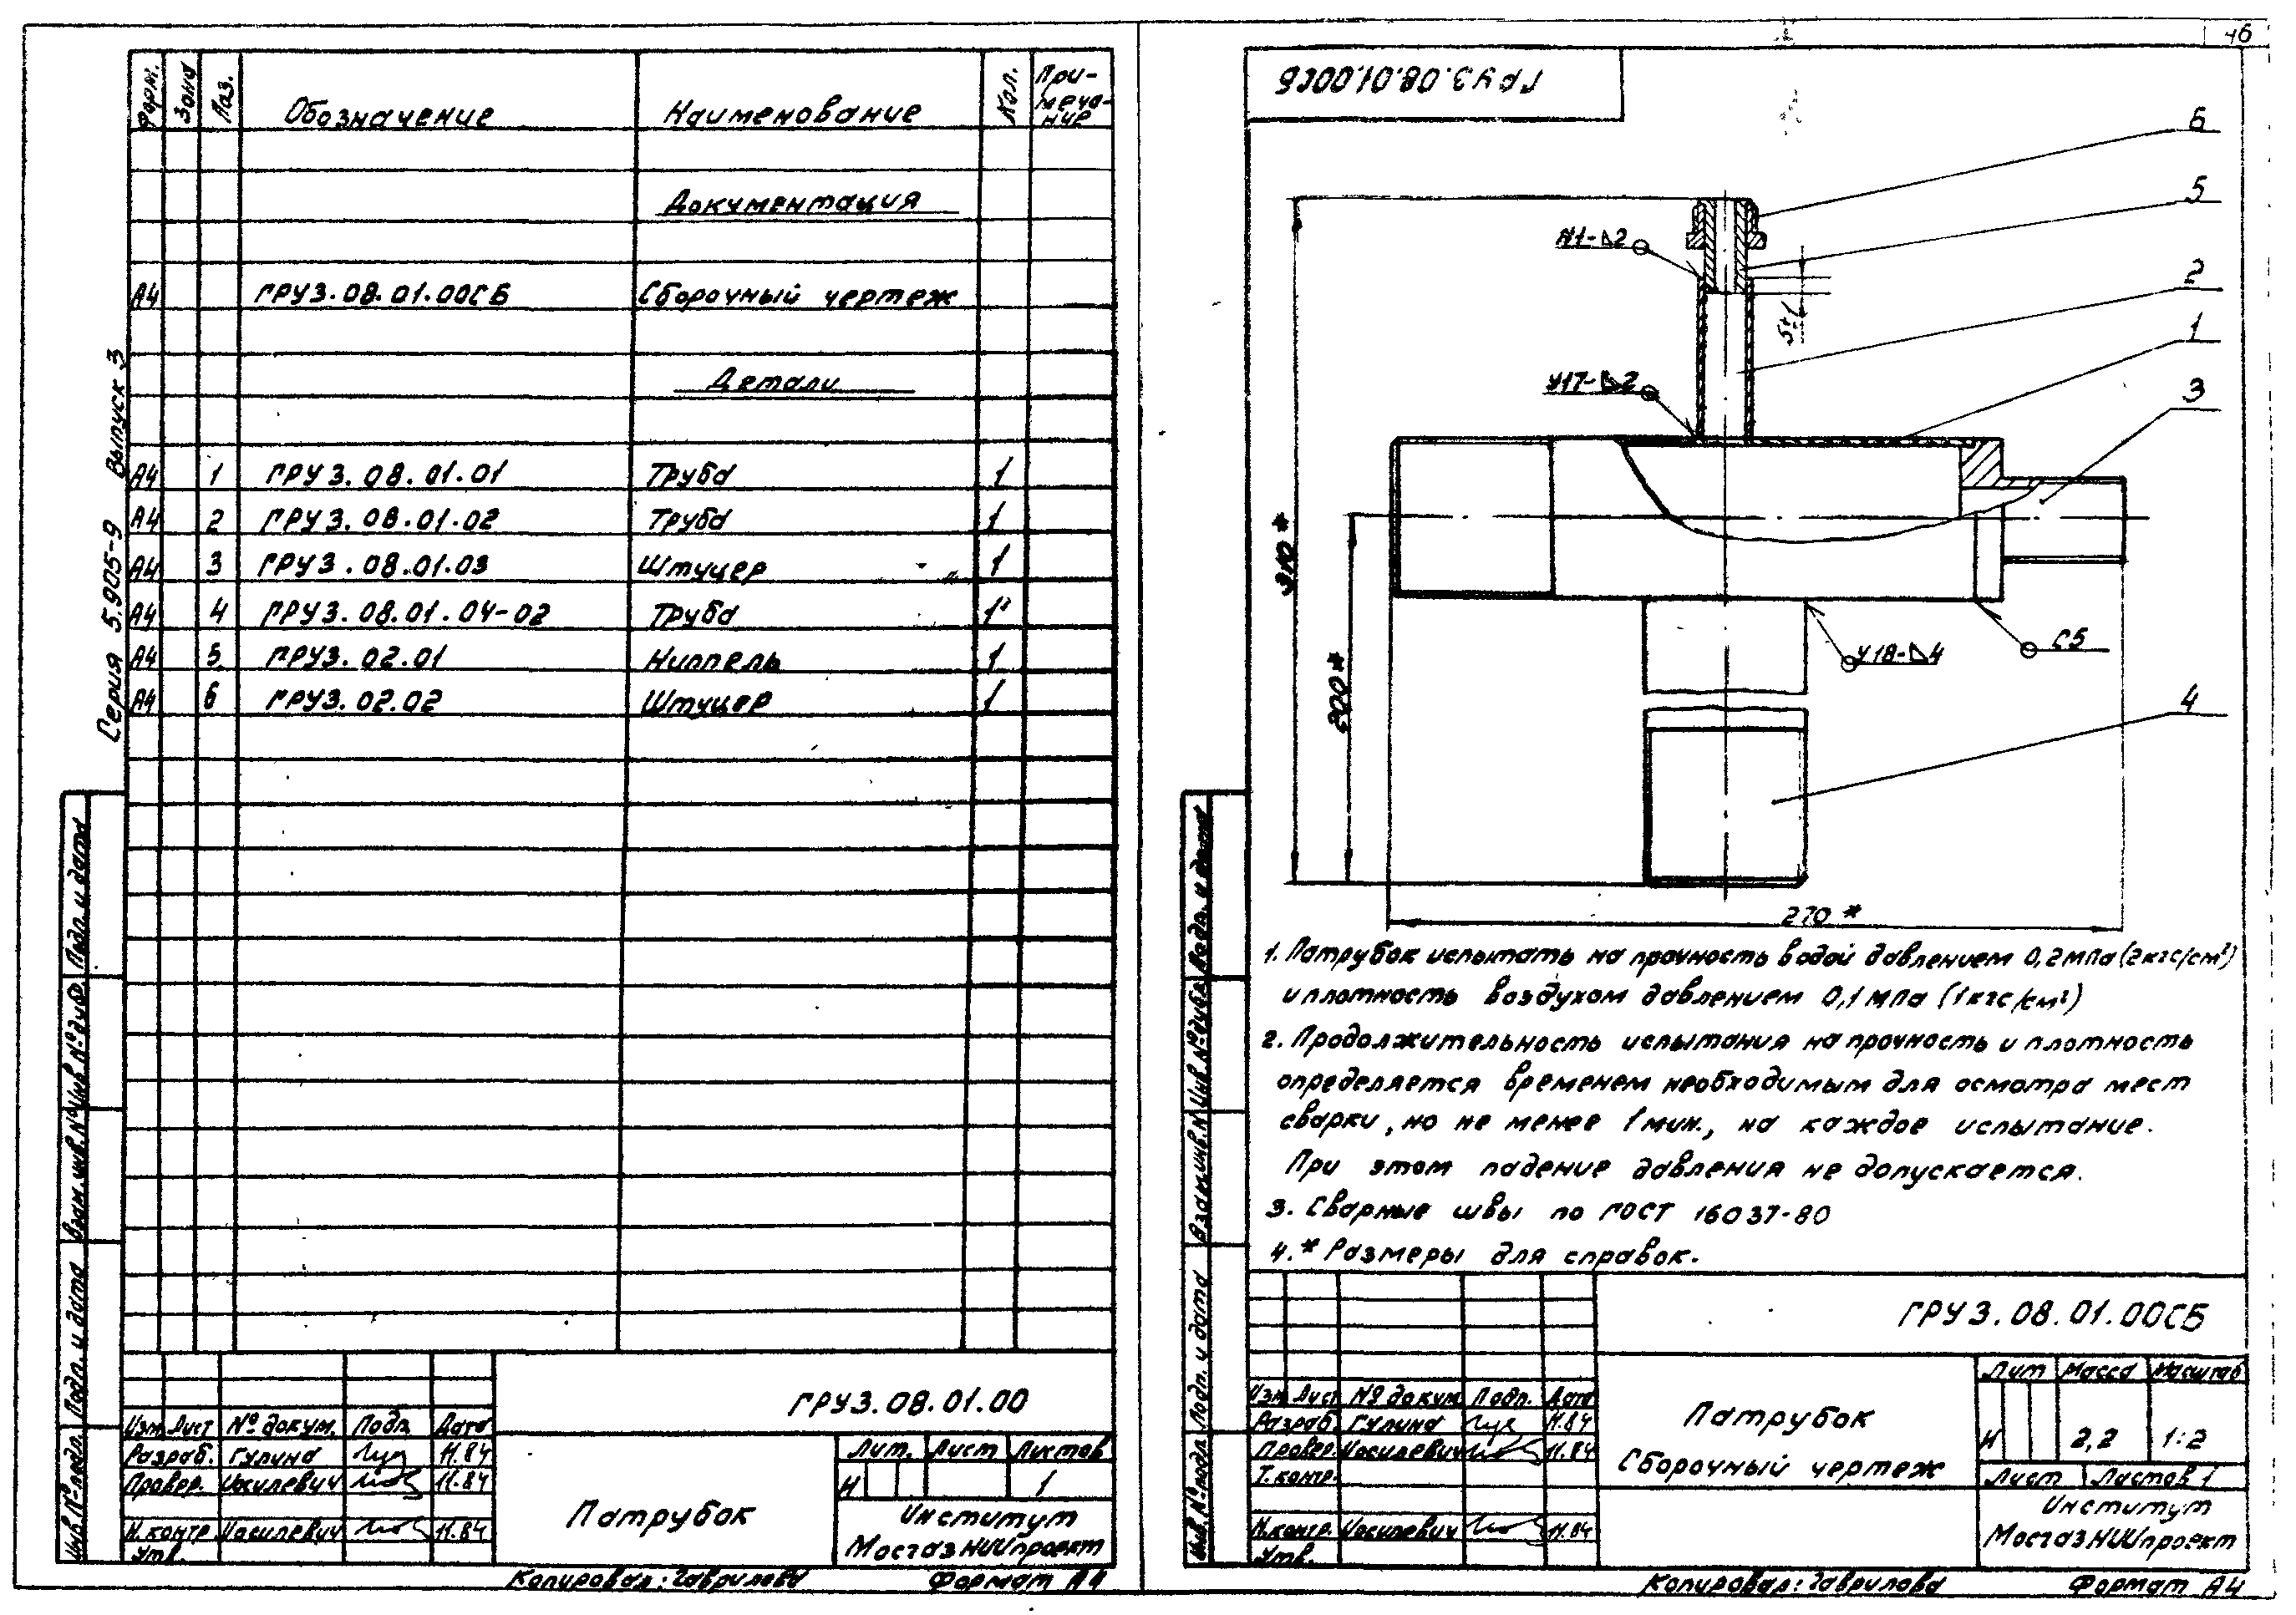 46
Форм.
Зона
Поз.
Обозначение
Наименование
Кол.
При-
меча-
ние
Документация
А4 ГРУЗ.08.01.00СБ Сборочный чертеж
Детали
А4 1 ГРУЗ.08.01.01 Труба 1
А4 2 ГРУЗ.08.01.02 Труба 1
А4 3 ГРУЗ.08.01.03 Штуцер 1
А4 4 ГРУЗ.08.01.04-02 Труба 1
А4 5 ГРУЗ.02.01 Ниппель 1
А4 6 ГРУЗ.02.02 Штуцер 1
Серия 5.905-9 Выпуск 3
Подп. и дата
Инв.№ дубл.
Взам.инв.№
Подп. и дата
Инв.№ подл.
ГРУЗ.08.01.00
Изм Лист № докум. Подп. Дата
Разраб. Гулина 11.84
Провер. Иосилевич 11.84
Н.контр. Иосилевич 11.84
Утв.
Патрубок
Лит. Лист Листов
И 1
Институт
МосгазНИИпроект
Копировал: Гаврилова Формат А4
ГРУЗ.08.01.00СБ
6
5
2
1
3
4
Н1-⊿2
У17-⊿2
5±1
310*
200*
У18-⊿4
С5
270*
1. Патрубок испытать на прочность водой давлением 0,2МПа (2кгс/см²)
и плотность воздухом давлением 0,1МПа (1кгс/см²)
2. Продолжительность испытания на прочность и плотность
определяется временем необходимым для осмотра мест
сварки, но не менее 1мин., на каждое испытание.
При этом падение давления не допускается.
3. Сварные швы по ГОСТ 16037-80
4.* Размеры для справок.
Подп. и дата
Инв.№ дубл.
Взам.инв.№
Подп. и дата
Инв.№ подл.
ГРУЗ.08.01.00СБ
Изм Лист № докум. Подп. Дата
Разраб. Гулина 11.84
Провер. Иосилевич 11.84
Т.контр.
Н.контр. Иосилевич 11.84
Утв.
Патрубок
Сборочный чертеж
Лит Масса Масштаб
И 2,2 1:2
Лист Листов 1
Институт
МосгазНИИпроект
Копировал: Гаврилова Формат А4